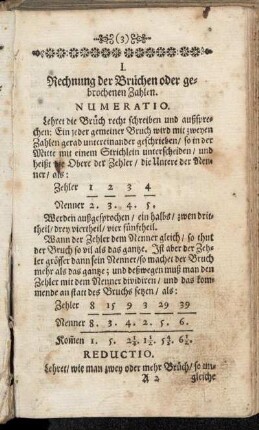 (3)
I.
Rechnung der Brüchen oder ge-
brochenen Zahlen.
NUMERATIO.
Lehret die Brüch recht schreiben und außspre-
chen: Ein jeder gemeiner Bruch wird mit zweyen
Zahlen gerad untereinander geschrieben/ so in der
Mitte mit einem Strichlein unterscheiden/ und
heißt die Obere der Zehler/ die Untere der Nen-
ner/ als:
Zehler 1 2 3 4
Nenner 2. 3. 4. 5.
Werden außgesprochen/ ein halbs/ zwen drit-
theil/ drey viertheil/ vier fünftheil.
Wann der Zehler dem Nenner gleich/ so thut
der Bruch so vil als das gantze. Ist aber der Zeh-
ler grösser dann sein Nenner/ so machet der Bruch
mehr als das gantze; und deßwegen muß man den
Zehler mit dem Nenner dividiren/ und das kom-
mende an statt des Bruchs setzen/ als:
Zehler 8 15 9 3 29 39
Nenner 8. 3. 4. 2. 5. 6.
Kom̄en 1. 5. 2¼. 1½. 5⅘. 6½.
REDUCTIO.
Lehret/ wie man zwey oder mehr Brüch/ so un-
A 2 gleiche